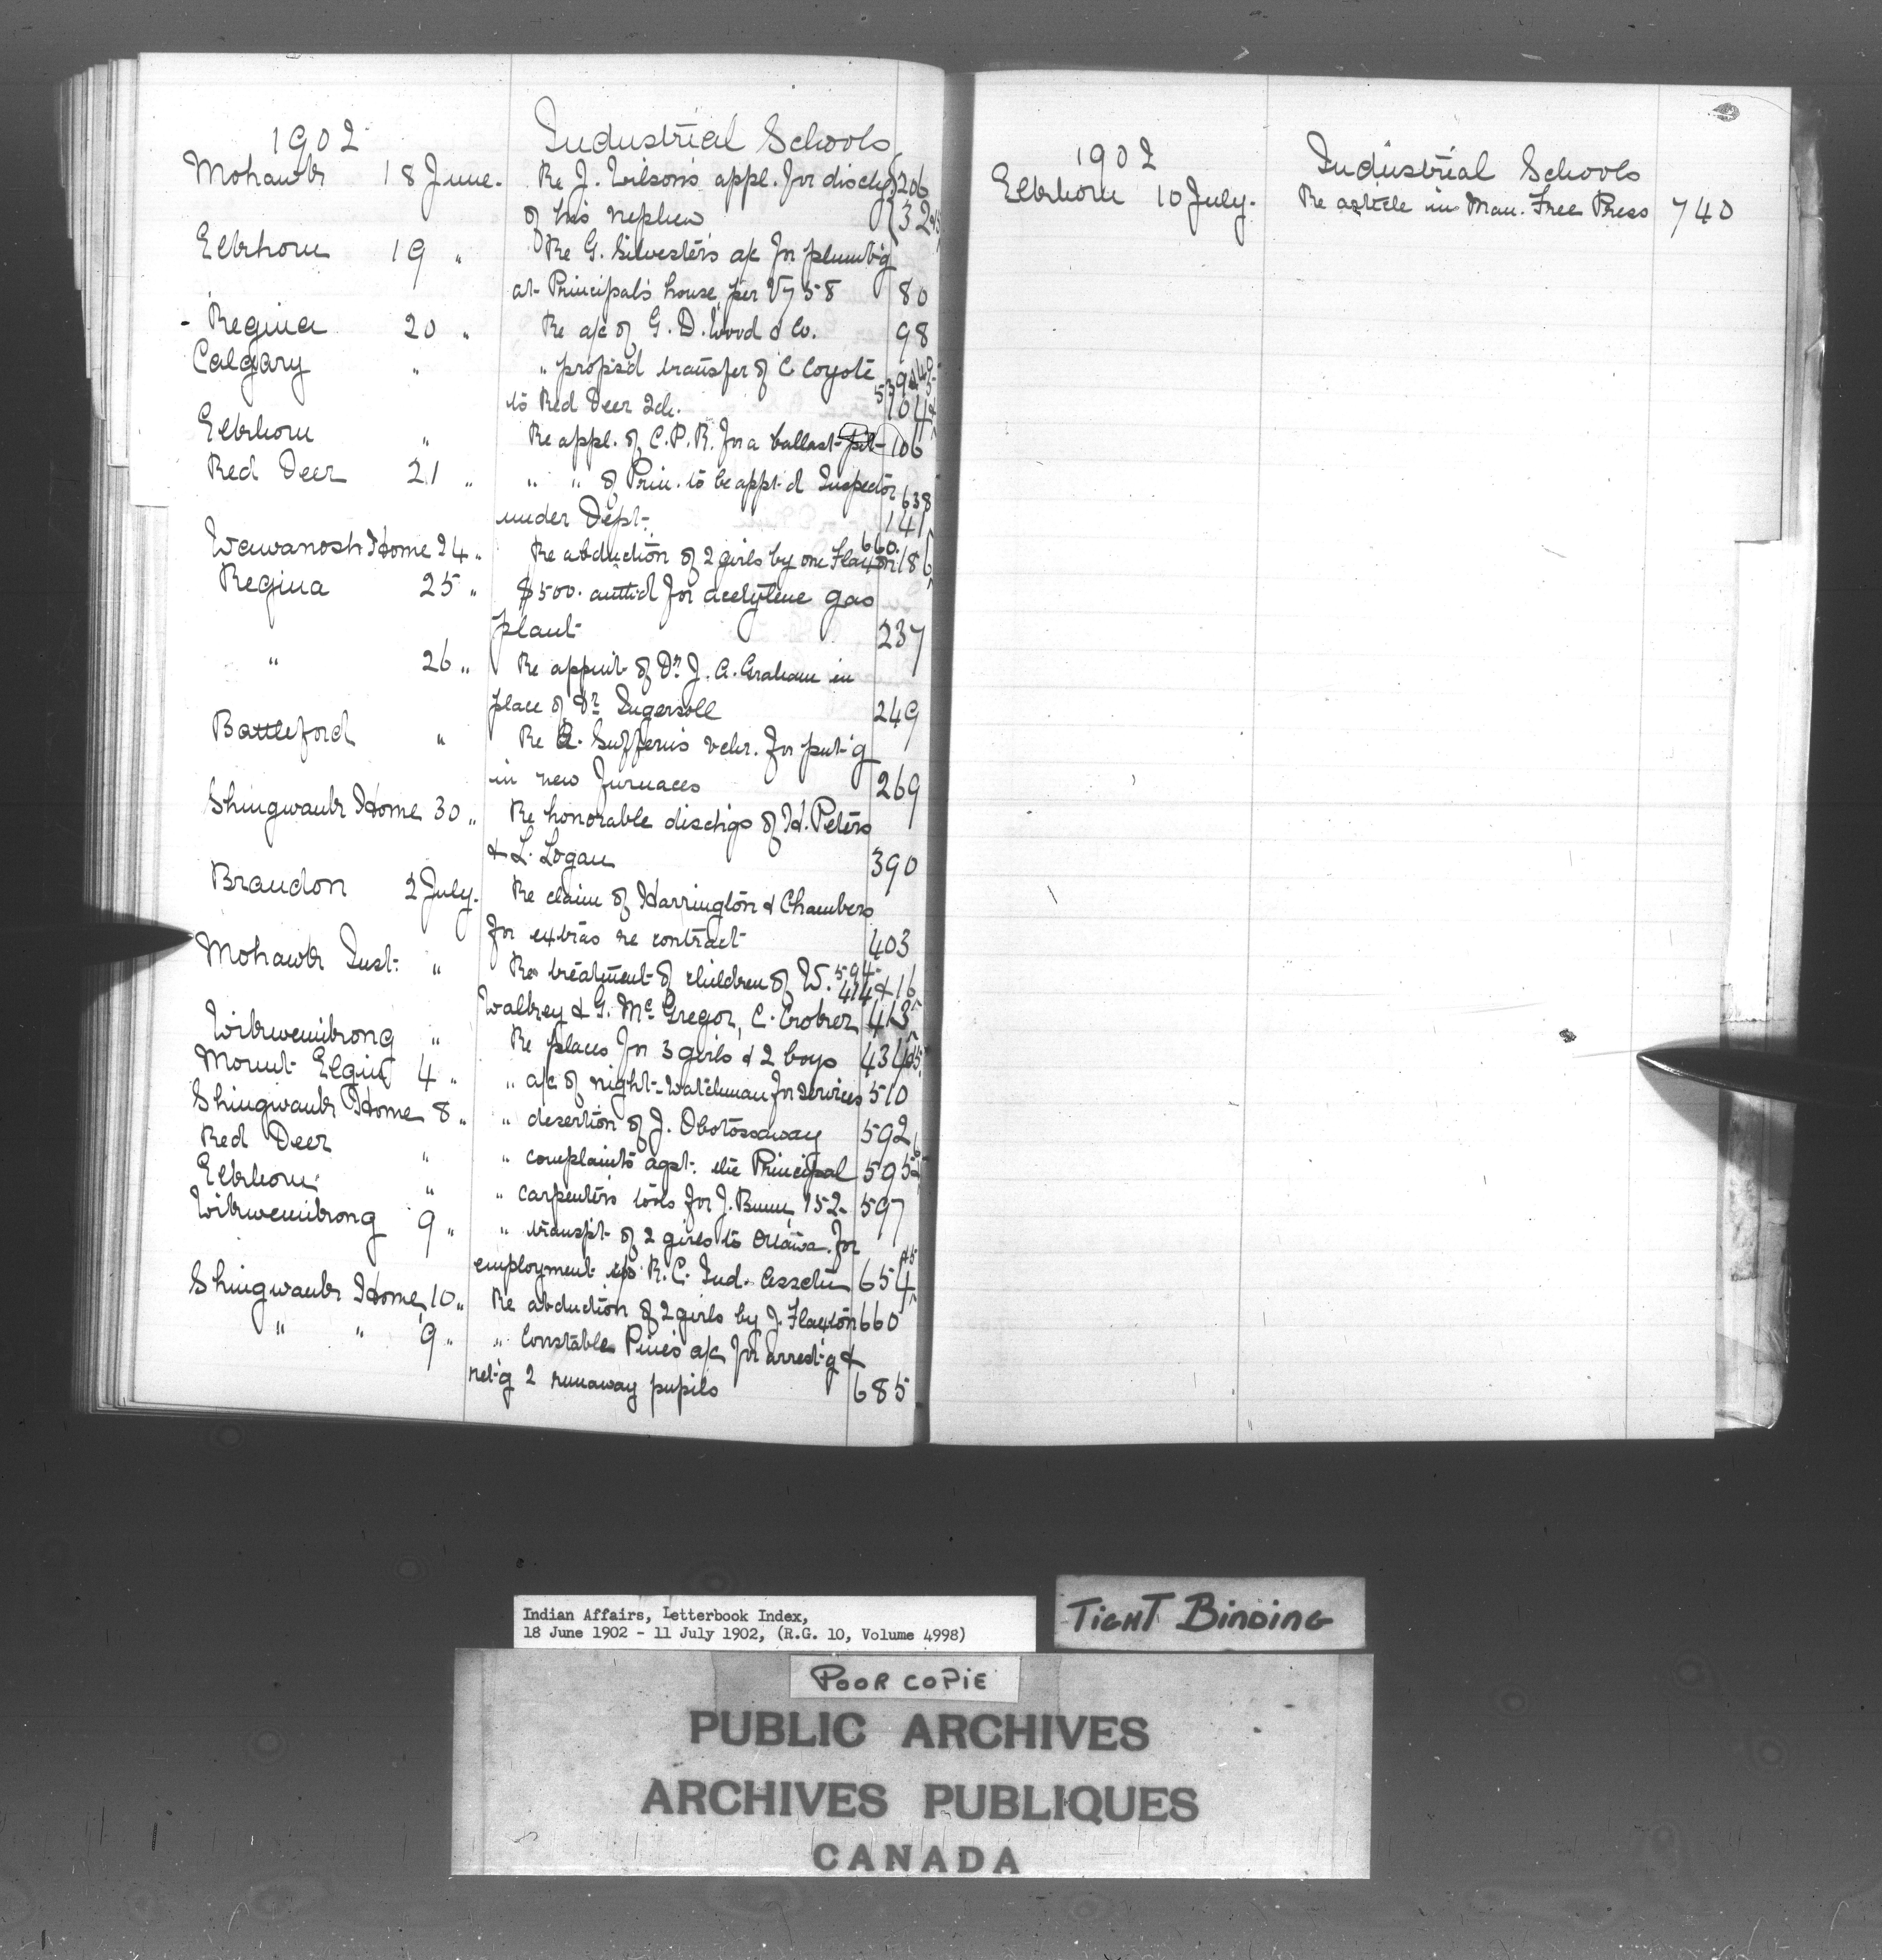 1902 Industrial Schools
Mohawk 18 June. Re J. Wilson's appl. for dischg 206
of his nephew 32
Elkhorn 19 " Re G. Silvester's a/c for plumb'g
at Principal's house, per V758 80
Regina 20 " Re a/c of G. D. Wood & Co. 98
Calgary " " propos'd transfer of C. Coyote
to Red Deer Sch. 104
Elkhorn " Re appl. of C.P.R. for a ballast-pit 106
Red Deer 21 " " " of Prin. to be appt'd Inspector 638
under Dept. 141
Wawanosh Home 24 " Re abduction of 2 girls by one Flaxton 660. 186
Regina 25 " $500. auth'd for acetylene gas
plant 237
" 26 " Re appnt of Dr J. A. Graham in
place of Dr Ingersoll 249
Battleford " Re R. Sufferin's vchr. for put'g
in new furnaces 269
Shingwauk Home 30 " Re honorable dischgs of H. Peters
& L. Logan 390
Brandon 2 July. Re claim of Harrington & Chambers
for extras re contract 403
Mohawk Inst. " Re treatment of children of W. 594 414 & 16
Walkey & G. McGregor, C. Crobrer 413
Wikwemikong " Re places for 3 girls & 2 boys 434
Mount Elgin 4 " " a/c of night-watchman for services 510
Shingwauk Home 8 " " desertion of J. Obotossaway 592
Red Deer " " complaints agst. the Principal 595
Elkhorn " " carpenter's tools for J. Bunn, 152 597
Wikwemikong 9 " " transp't of 2 girls to Ottawa for
employment R.C. Ind. Assctn 654
Shingwauk Home 10 " Re abduction of 2 girls by J. Flaxton 660
" " 9 " " Constable Pine's a/c for arrest'g &
ret'g 2 runaway pupils 685
1902 Industrial Schools
Elkhorn 10 July. Re article in Man. Free Press 740
Indian Affairs, Letterbook Index,
18 June 1902 - 11 July 1902, (R.G. 10, Volume 4998)
TIGHT BINDING
POOR COPIE
PUBLIC ARCHIVES
ARCHIVES PUBLIQUES
CANADA